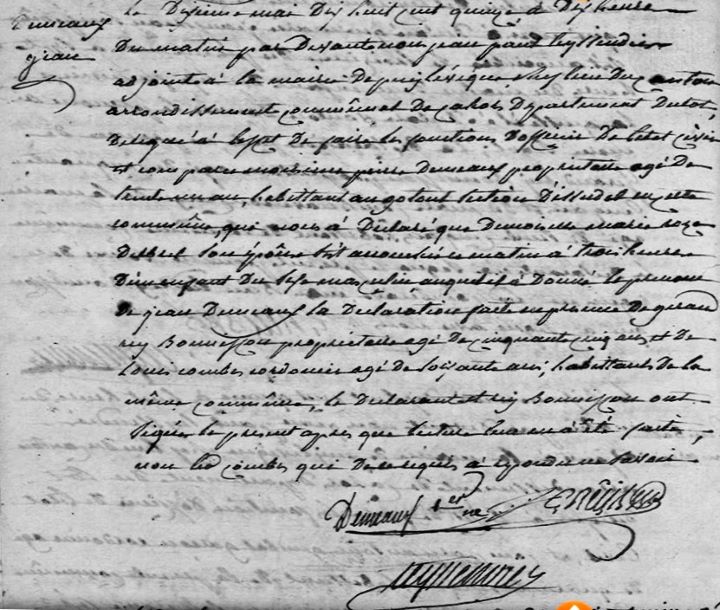 Demeaux
jean
Le Dixieme mai Dix huit cent quinze à Dix heures
Du matin par Devant nous jean paul
adjoint à la mairie De puylévêque chef lieu De canton
arrondissement communal De cahors Département Du Lot,
Delégué à leffet De faire les fonctions D'officier De letat civil
Est comparu monsieur pierre Demeaux propriétaire agé De
trente un an, habittant au section D'issudel sus cette
commune, qui nous à Déclaré que Demoiselle marie
son épouse soit accouchée ce matin à trois heures
D'un enfant Du sexe masculin auquel il à Donné le prenom
De jean Demeaux La Declaration faite en presence De
Bonnesson propriétaire agé De cinquante cinq ans et De
Louis combes cordonier agé De soixante ans, habittans De la
même commune, Le Declarant et Bonnesson ont
signé le present apres que lecture leur en a été faite,
non led combes qui De ce requis à repondu ne savoir
Demeaux